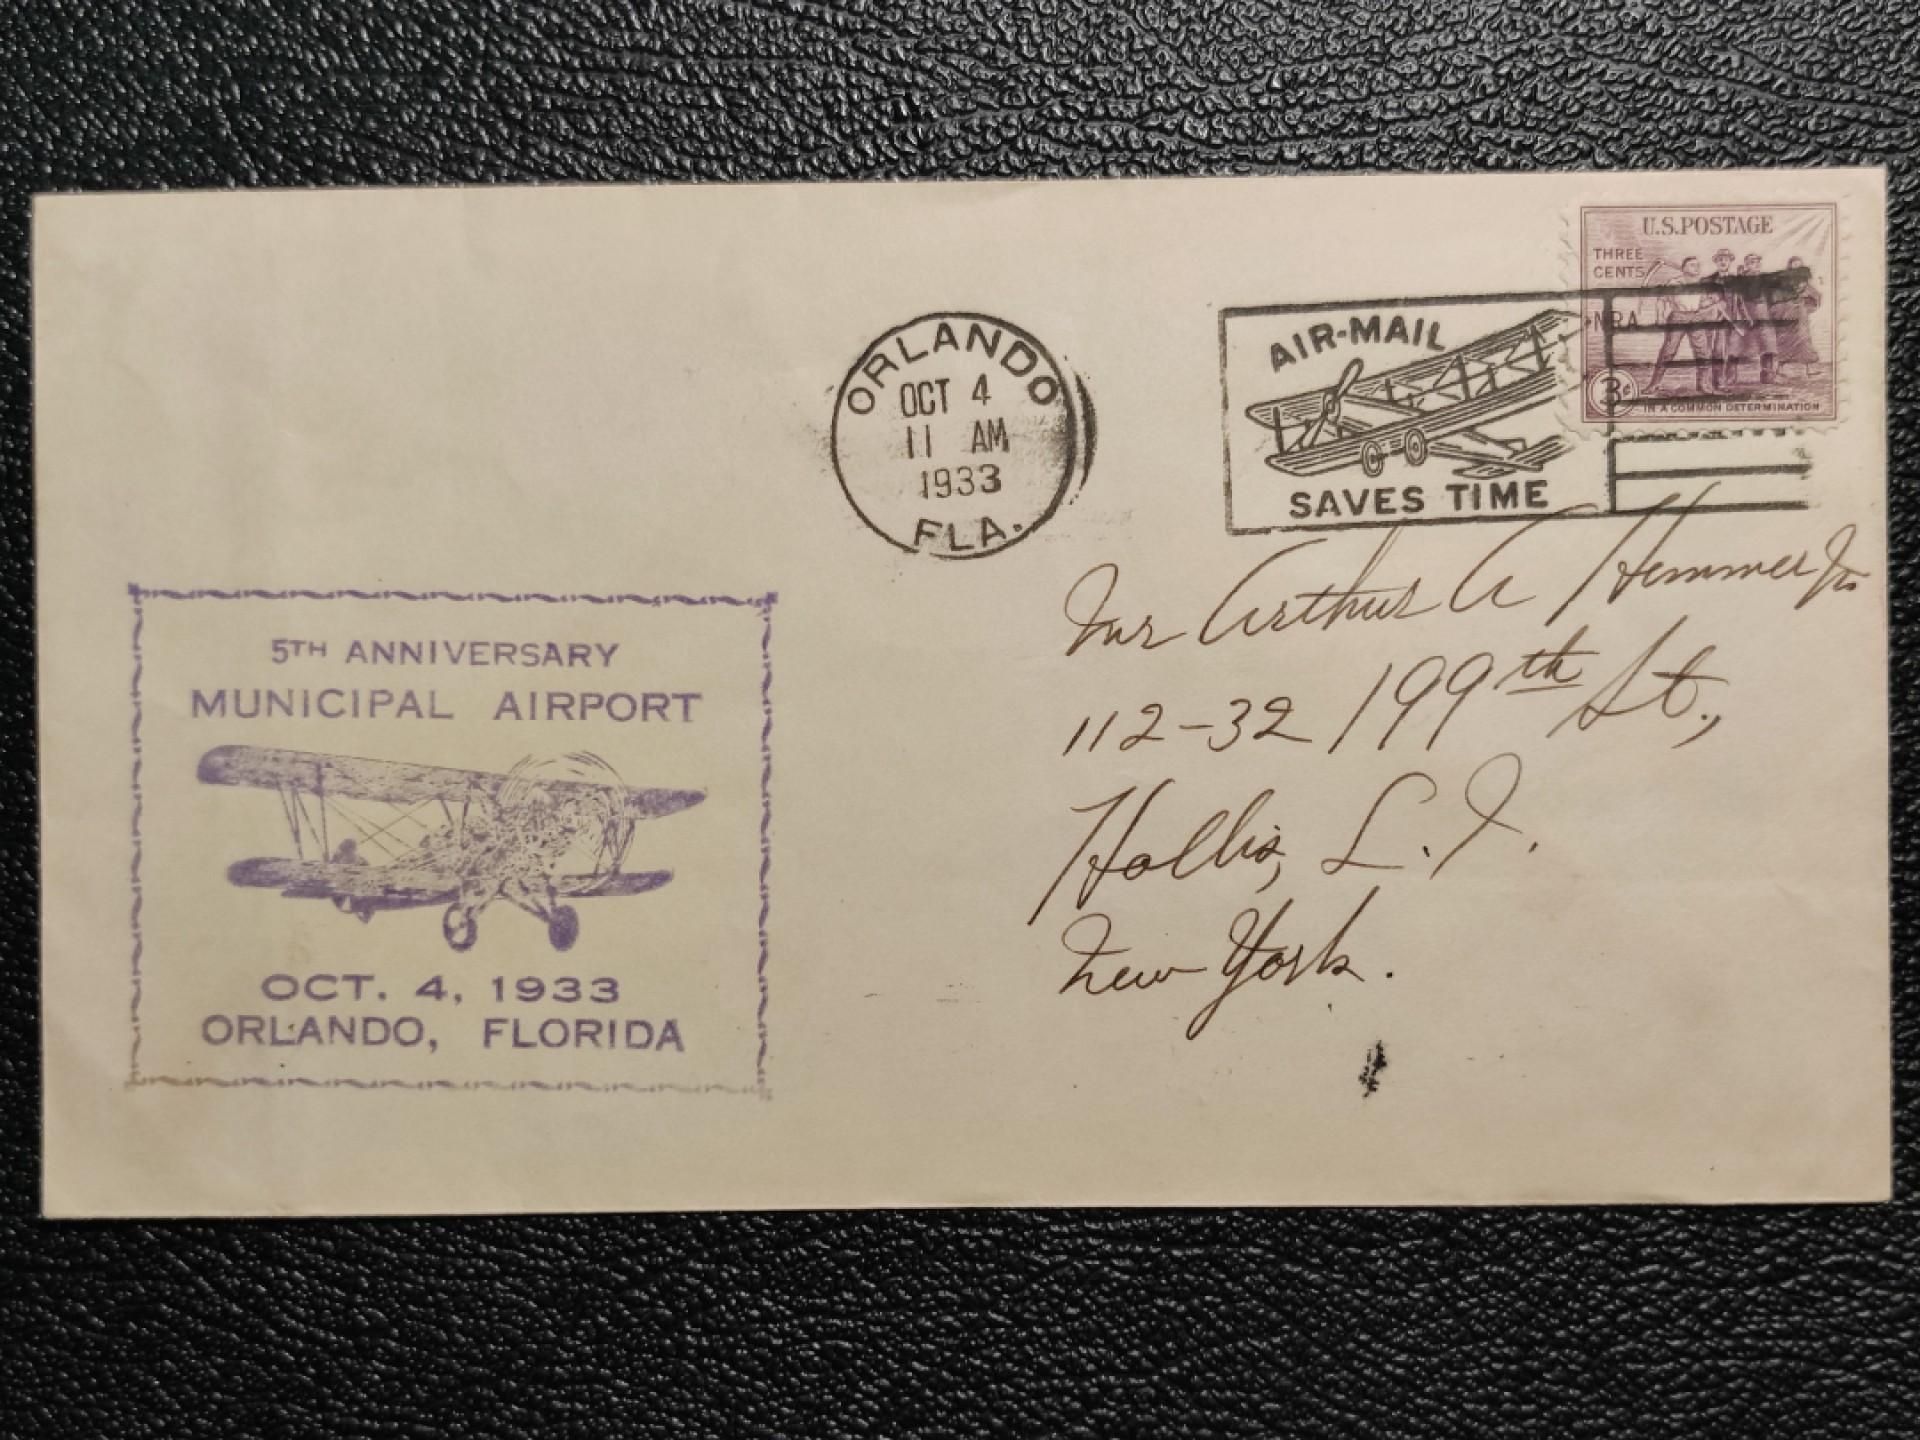 U.S. POSTAGE
THREE
CENTS
NRA
3¢
IN A COMMON DETERMINATION
ORLANDO
OCT 4
11 AM
1933
FLA.
AIR-MAIL
SAVES TIME
Mr Arthur A Hemmer Jr
112-32 199th St.,
Hollis, L. I.
New York.
5TH ANNIVERSARY
MUNICIPAL AIRPORT
OCT. 4, 1933
ORLANDO, FLORIDA